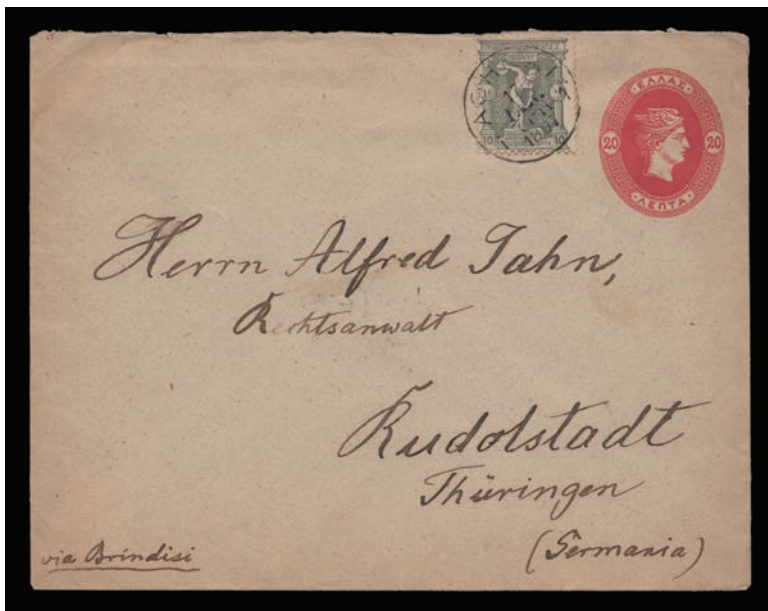 ΕΛΛΑΣ
20 20
ΛΕΠΤΑ
10 10
Herrn Alfred Jahn,
Rechtsanwalt
Rudolstadt
Thüringen
(Germania)
via Brindisi